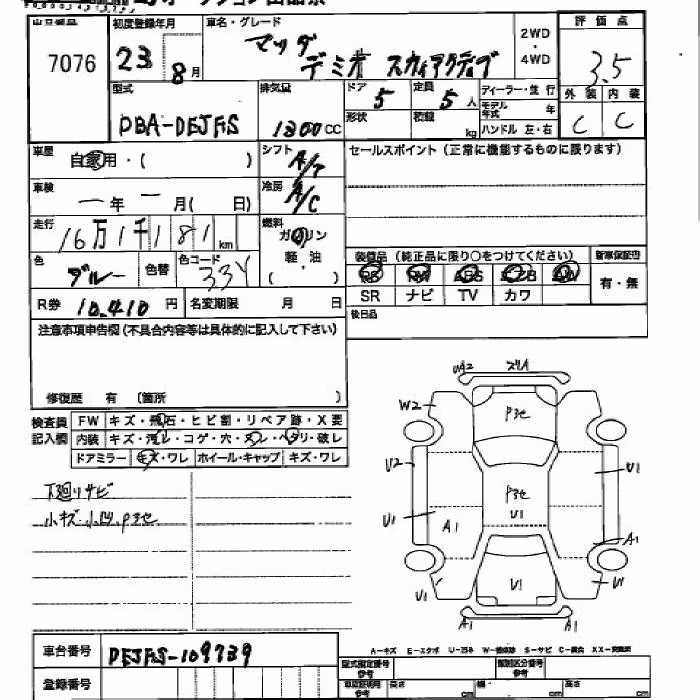 出品番号 初度登録年月 車名・グレード 2WD・4WD 評価点
7076 23 8月 マツダ デミオ スカイアクティブ 3.5
型式 排気量 ドア 定員 ディーラー・並行 外装 内装
DBA-DEJFS 1300cc 5 5人 モデル年式 年 C C
形状 積載 kg ハンドル 左・右
車歴 自家用・( ) シフト A/T セールスポイント(正常に機能するものに限ります)
車検 ー年ー月( 日) 冷房 A/C
走行 16万1千181km 燃料 ガソリン
軽・油
( )
装備品(純正品に限り○をつけてください) 新車保証書
色 ブルー 色替 色コード 33Y
PS PW ABS エアB AW 有・無
SR ナビ TV カワ
R券 10,410円 名変期限 月 日 後日品
注意事項申告欄(不具合内容等は具体的に記入して下さい)
修復歴 有 〔箇所 〕
検査員記入欄 FW キズ・飛石・ヒビ割・リペア跡・X要
内装 キズ・汚レ・コゲ・穴・スレ・ヘタリ・破レ
ドアミラー キズ・ワレ ホイール・キャップ キズ・ワレ
下廻りサビ
小キズ 小凹 Pヨセ
W2 Pヨセ
U2 U1
Pヨセ
U1 A1 U1
A1
U1 U1 W
A1 A1
車台番号 DEJFS-109739
登録番号
A-キズ E-エクボ U-凹み W-補修跡 S-サビ C-腐食 XX-交換済
型式指定番号 類別区分番号
長さ cm 幅 cm 高さ cm